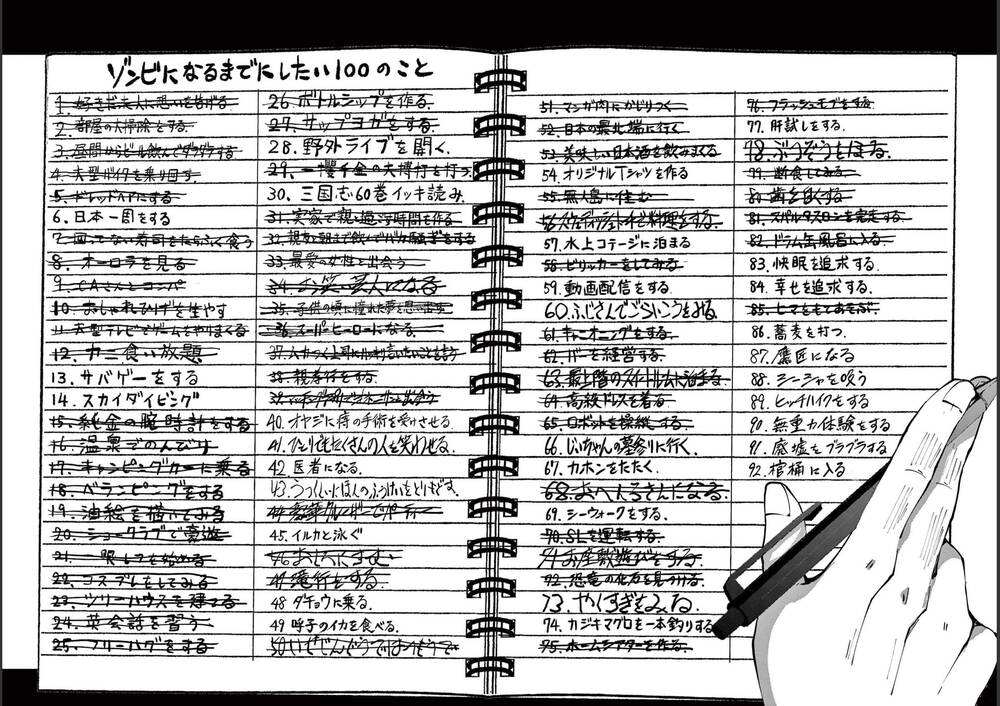 ゾンビになるまでにしたい100のこと
1. 好きだった人に思いを告げる
2. 部屋の大掃除をする。
3. 昼間からビール飲んでダラダラする
4. 大型バイクを乗り回す。
5. ドレッドヘアにする
6. 日本一周をする
7. 回ってない寿司をたらふく食う
8. オーロラを見る
9. CAさんとコンパ
10. おしゃれひげを生やす
11. 大型テレビでゲームをやりまくる
12. カニ食い放題
13. サバゲーをする
14. スカイダイビング
15. 純金の腕時計をする
16. 温泉でのんびり
17. キャンピングカーに乗る
18. ベランピングをする
19. 油絵を描いてみる
20. ショークラブで豪遊
21. 一眼レフを始める
22. コスプレをしてみる
23. ツリーハウスを建てる
24. 英会話を習う
25. フリーハグをする
26. ボトルシップを作る。
27. サップヨガをする
28. 野外ライブを開く。
29. 一攫千金の大博打を打つ
30. 三国志60巻イッキ読み
31. 実家で親と過ごす時間を作る
32. 親友と朝まで飲んでバカ騒ぎをする
33. 最愛の女性と出会う
34. お笑い芸人になる
35. 子供の頃に憧れた夢を思い出す
36. スーパーヒーローになる。
37. ムカつく上司にハッキリ言いたいことを言う
38. 親孝行をする。
39.
40. オヤジに痔の手術を受けさせる。
41. ひとりでもたくさんの人を笑わせる。
42. 医者になる。
43. うつくしいにほんのふうけいをとりもどす。
44.
45. イルカと泳ぐ
46.
47. 滝行をする。
48 ダチョウに乗る。
49 呼子のイカを食べる。
50.
51. マンガ肉にかじりつく
52. 日本の最北端に行く
53. 美味しい日本酒を飲みまくる
54 オリジナルTシャツを作る
55. 無人島に住む
56. 料理をする。
57. 水上コテージに泊まる
58. ビリヤードをしてみる
59. 動画配信をする。
60. ふじさんでごらいこうをみる。
61. キャニオニングをする。
62. バーを経営する。
63. 最上階のスイートルームに泊まる
64. 高級ドレスを着る
65. ロボットを操縦する。
66. じいちゃんの墓参りに行く。
67. カホンをたたく。
68. おへんろさんになる。
69. シーウォークをする。
70. SLを運転する。
71. お座敷遊びをする。
72. 恐竜の化石を見つける。
73. やくすぎをみる。
74. カジキマグロを一本釣りする
75. ホームシアターを作る。
76. フラッシュモブをする
77. 肝試しをする。
78. ぶつぞうをほる。
79. 断食してみる。
80. 歯を白くする
81. スパルタスロンを完走する
82. ドラム缶風呂に入る。
83. 快眠を追求する.
84. 幸せを追求する。
85. ヒマをもてあそぶ
86. 蕎麦を打つ。
87. 鷹匠になる
88. シーシャを吸う
89. ヒッチハイクをする
90. 無重力体験をする
91. 廃墟をブラブラする
92. 棺桶に入る